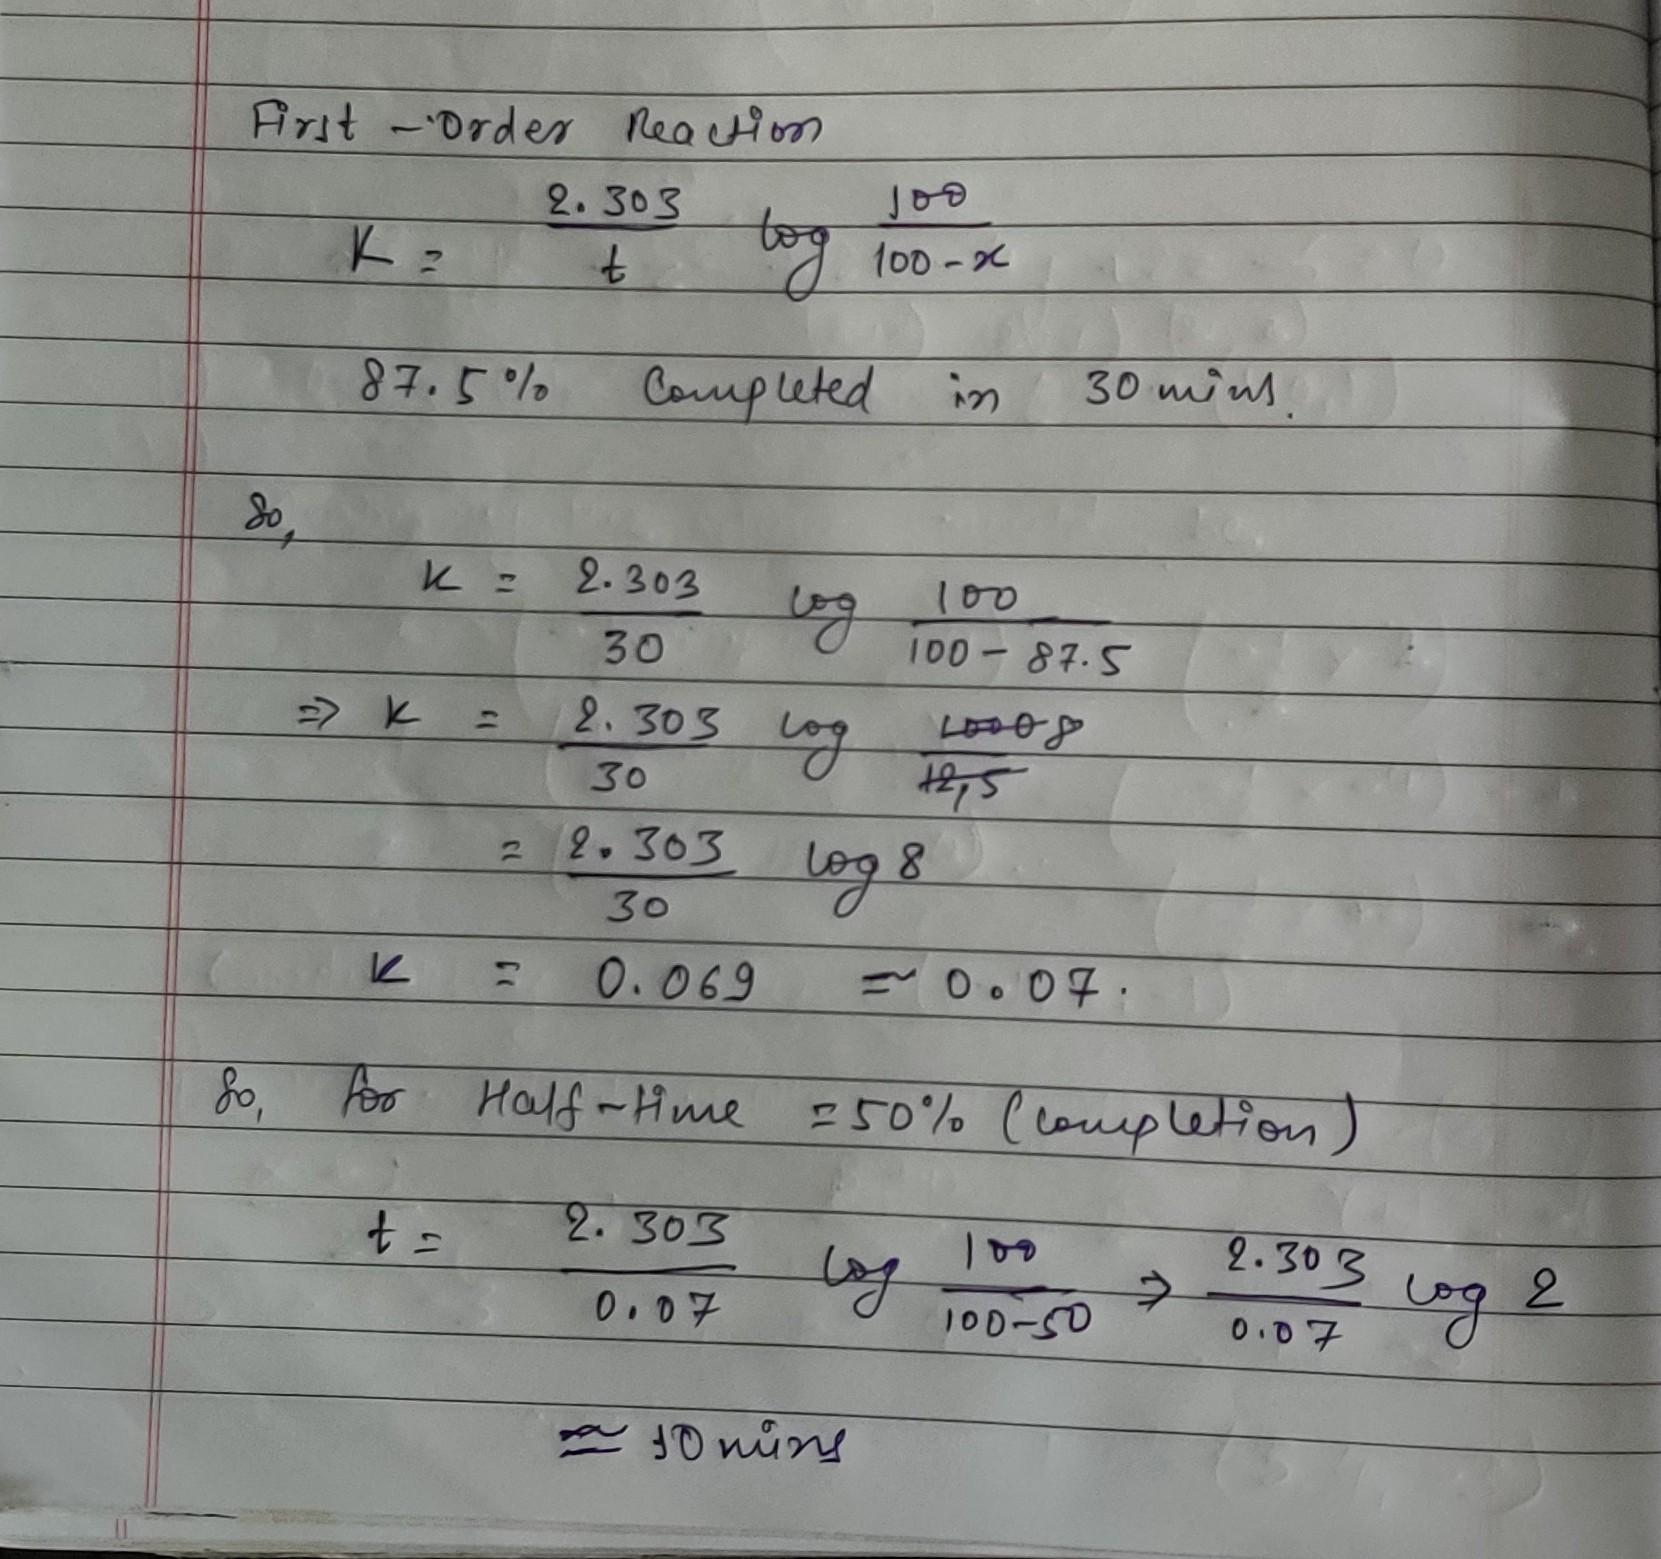 First-Order Reaction
K = 2.303/t log 100/100-x
87.5% Completed in 30 mins.
So,
K = 2.303/30 log 100/100-87.5
⇒ K = 2.303/30 log 8
= 2.303/30 log 8
K = 0.069 ≃ 0.07.
So, for Half-time = 50% (completion)
t = 2.303/0.07 log 100/100-50 ⇒ 2.303/0.07 log 2
≅ 10 mins